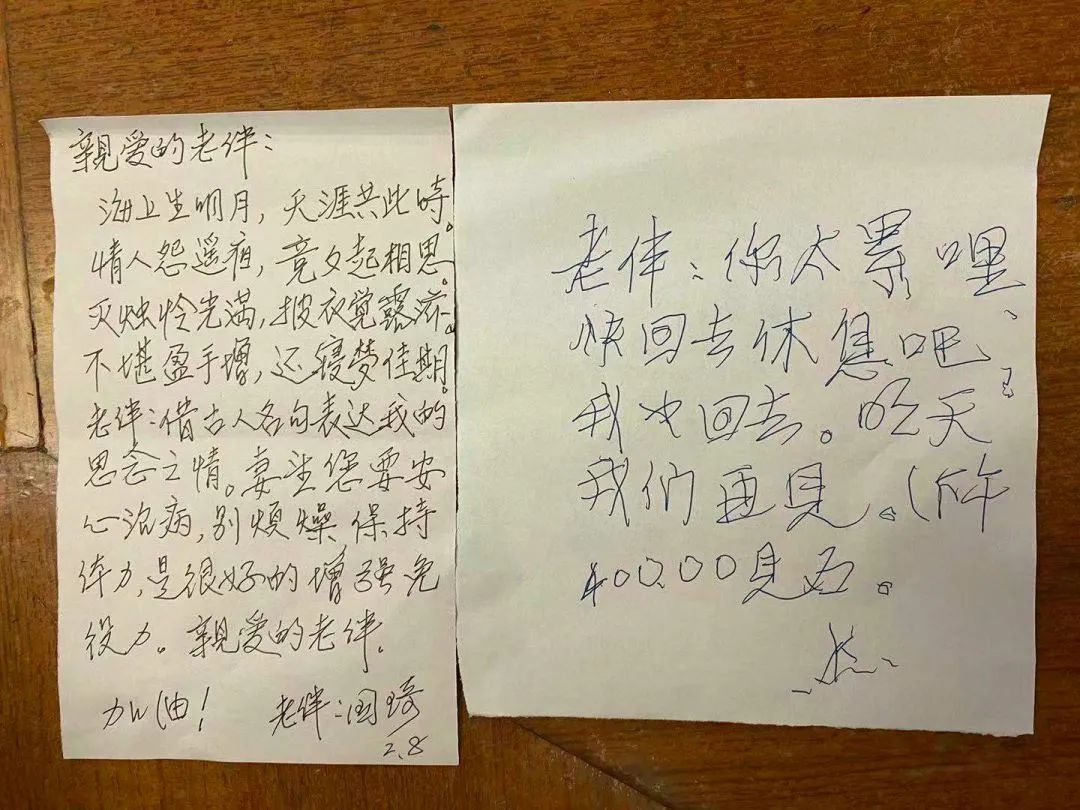 亲爱的老伴:
海上生明月,天涯共此時。
情人怨遥夜,竟夕起相思。
灭烛怜光满,披衣觉露滋。
不堪盈手增,还寝梦佳期。
老伴:借古人名句表达我的
思念之情。妻望您要安
心治病,别烦燥保持
体力,是很好的增强免
役力。亲爱的老伴。
加油! 老伴:国琦
2.8
老伴:你太累哩、
快回去休息吧。
我也回去。明天
我们再见。(下午
400.00见